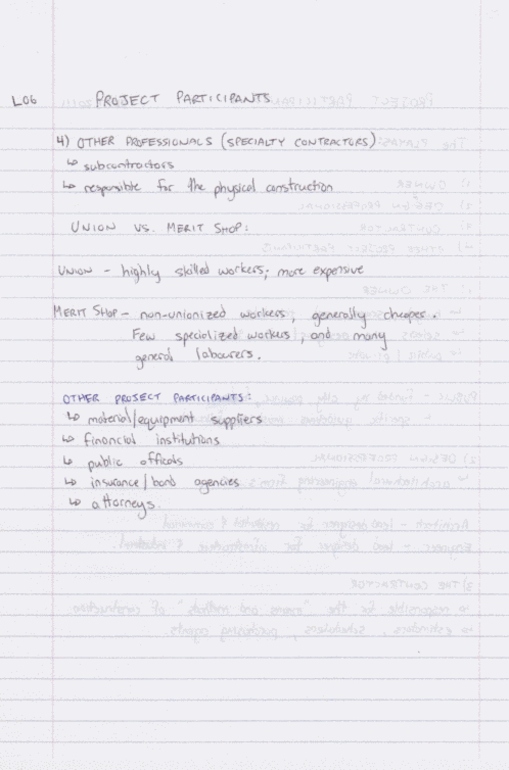 L06 PROJECT PARTICIPANTS
4) OTHER PROFESSIONALS (SPECIALTY CONTRACTORS)
↳ subcontractors
↳ responsible for the physical construction
UNION VS. MERIT SHOP:
UNION - highly skilled workers; more expensive
MERIT SHOP - non-unionized workers; generally cheaper.
Few specialized workers, and many
general labourers.
OTHER PROJECT PARTICIPANTS:
↳ material/equipment suppliers
↳ financial institutions
↳ public officals
↳ insurance/bond agencies
↳ attorneys.